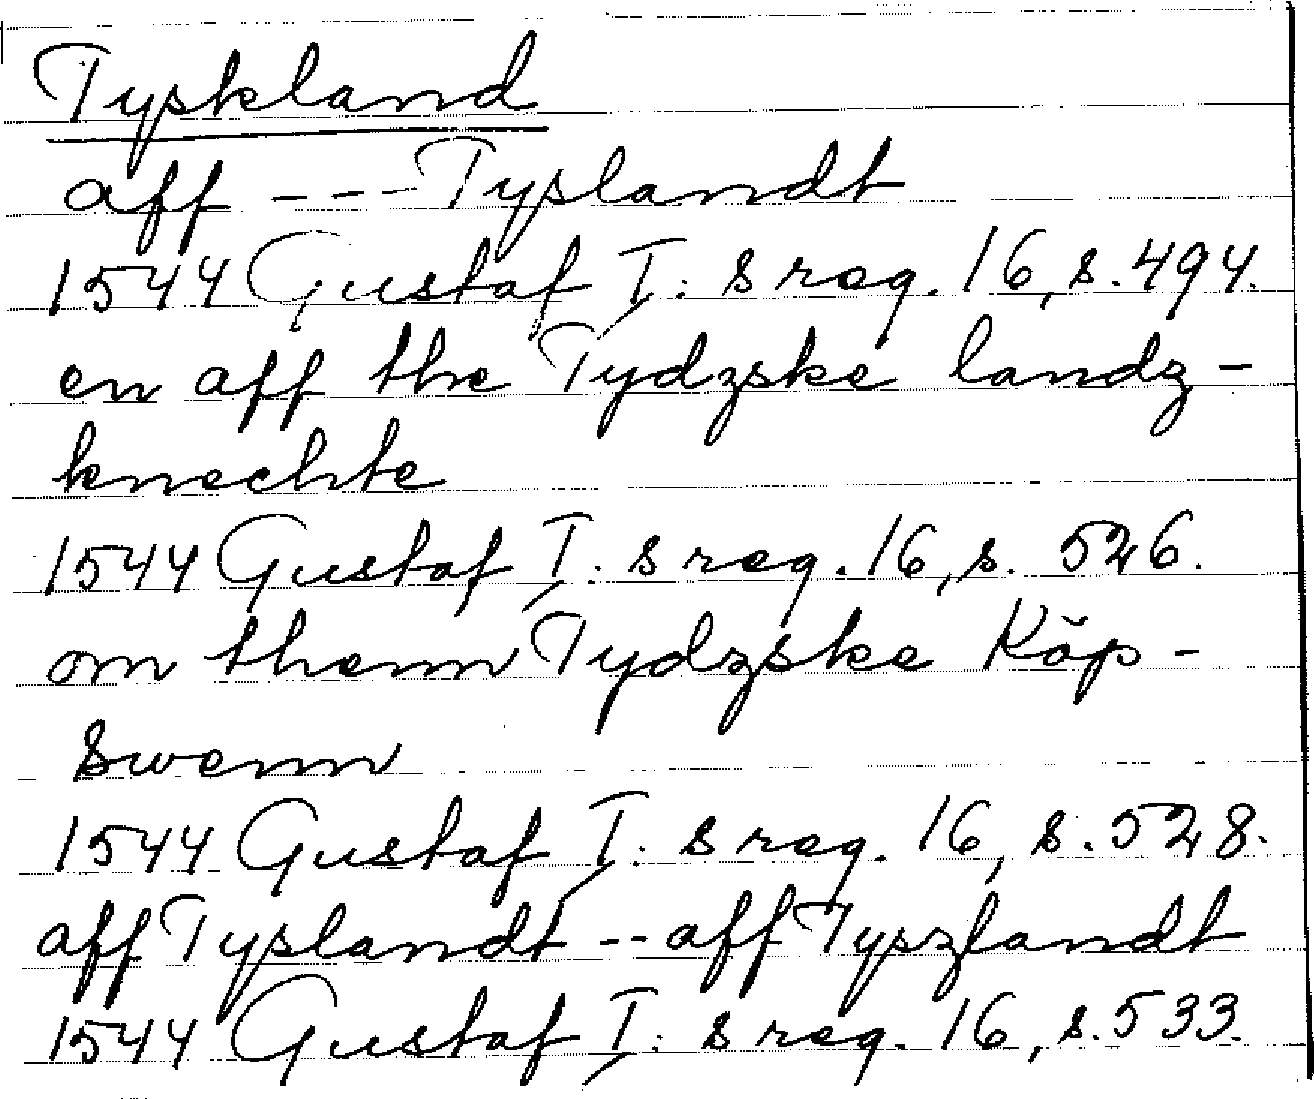 Tyskland
aff --- Tyslandt
1544 Gustaf I:s reg. 16, s. 494.
en aff the Tydzske landz-
knechte
1544 Gustaf I:s reg. 16, s. 526.
om thenn Tydzske Köp-
swenn
1544 Gustaf I:s reg. 16, s. 528.
aff Tyslandt -- aff Tyszlandt
1544 Gustaf I:s reg. 16, s. 533.